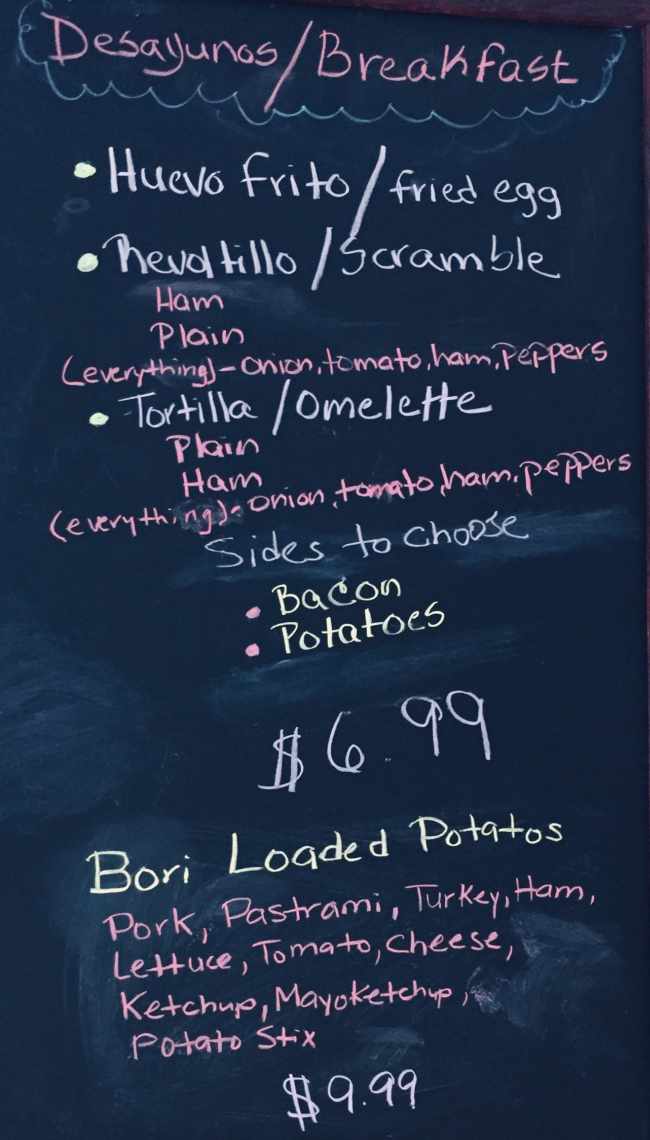 Desayunos/Breakfast
• Huevo frito/fried egg
• Revoltillo/Scramble
Ham
Plain
(everything)-onion, tomato, ham, peppers
• Tortilla/Omelette
Plain
Ham
(everything)-onion, tomato, ham, peppers
Sides to choose
• Bacon
• Potatoes
$6.99
Bori Loaded Potatos
Pork, Pastrami, Turkey, Ham,
Lettuce, Tomato, cheese,
Ketchup, Mayoketchup,
Potato Stix
$9.99